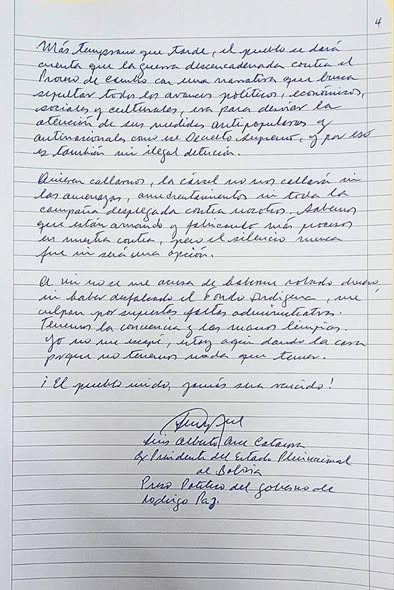 4
Más temprano que tarde, el pueblo se dará
cuenta que la guerra desencadenada contra el
Proceso de Cambio con una narrativa que busca
sepultar todos los avances políticos, económicos,
sociales y culturales, era para desviar la
atención de sus medidas antipopulares y
antinacionales como ese Decreto Supremo, y por eso
es también mi ilegal detención.
Quieren callarnos, la cárcel no nos callará ni
las amenazas, amedrentamientos ni toda la
campaña desplegada contra nosotros. Sabemos
que están armando y fabricando más procesos
en nuestra contra, pero el silencio nunca
fue ni será una opción.
A mi no se me acusa de haberme robado dinero,
ni haber desfalcado el Fondo Indígena, me
culpan por supuestas faltas administrativas.
Tenemos la conciencia y las manos limpias.
Yo no me escapé, estoy aquí dando la cara
porque no tenemos nada que temer.
¡El pueblo unido, jamás será vencido!
Luis Alberto Arce Catacora
Ex Presidente del Estado Plurinacional
de Bolivia
Preso Político del gobierno de
Rodrigo Paz.